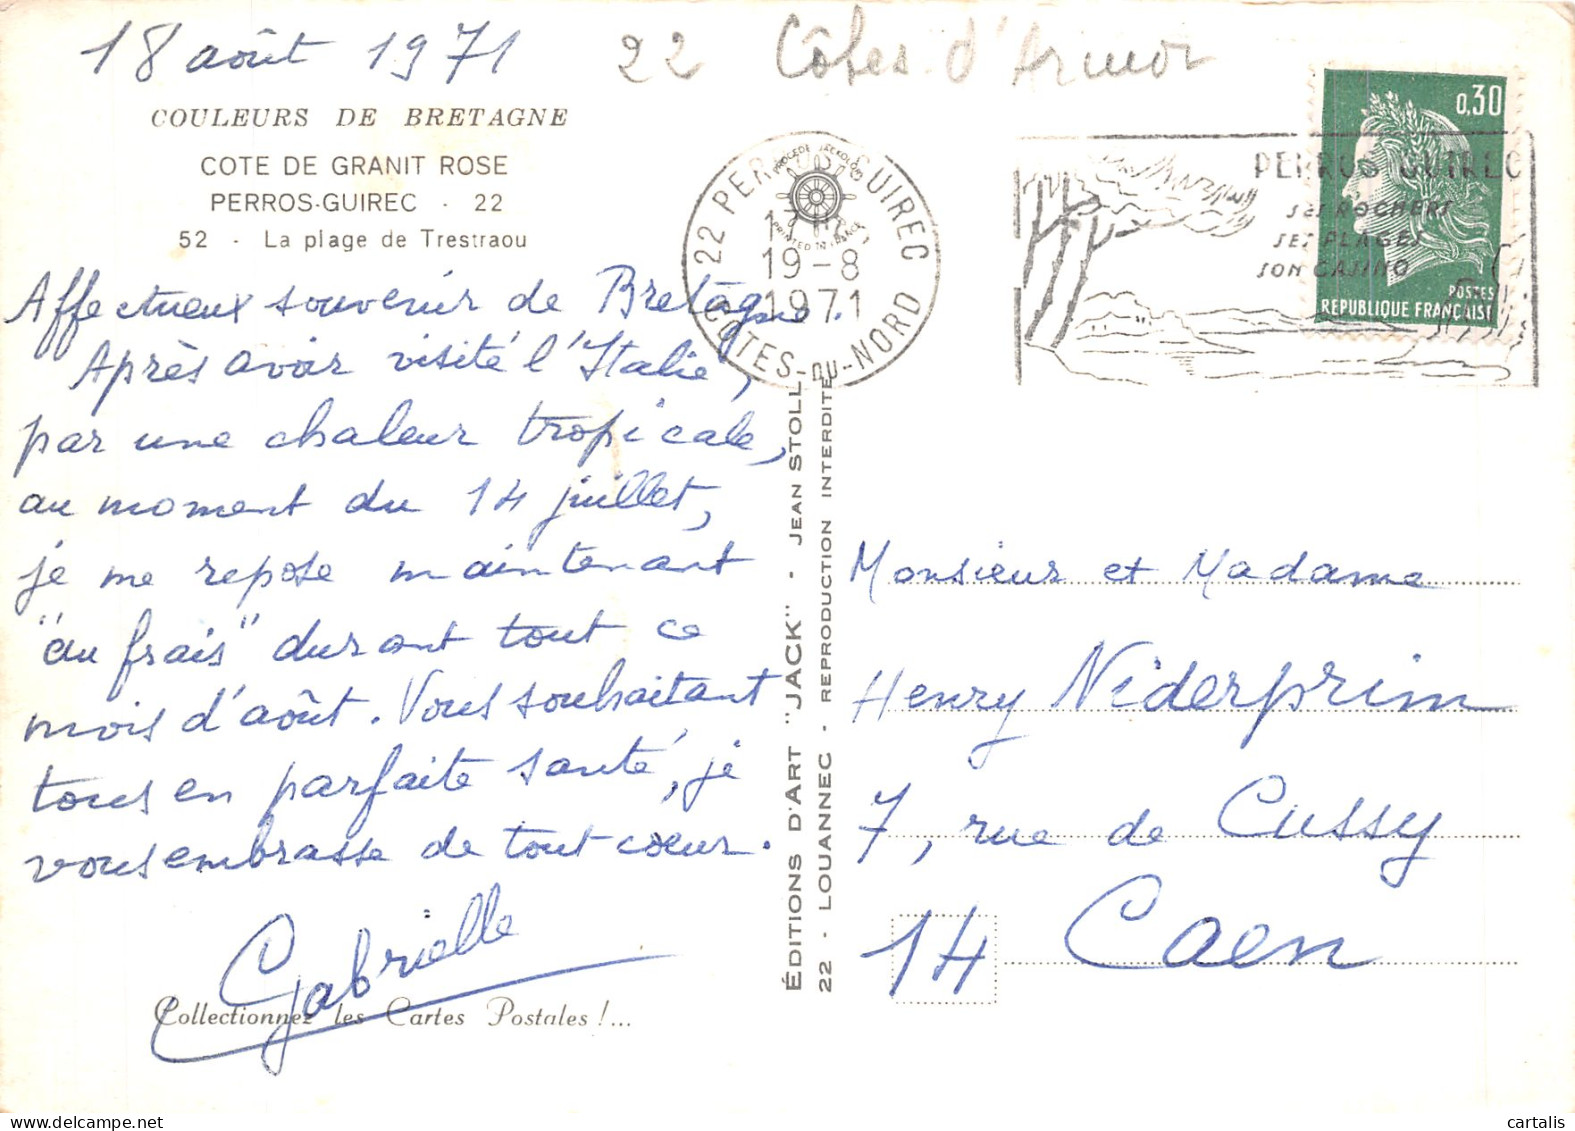 18 août 1971
22 Côtes d'Armor
COULEURS DE BRETAGNE
COTE DE GRANIT ROSE
PERROS-GUIREC - 22
52 - La plage de Trestraou
Affectueux souvenir de Bretagne.
Après avoir visité l'Italie,
par une chaleur tropicale,
au moment du 14 juillet,
je me repose maintenant
"au frais" durant tout ce
mois d'août. Vous souhaitant
tous en parfaite santé, je
vous embrasse de tout cœur.
Gabrielle
Collectionnez les Cartes Postales !...
ÉDITIONS D'ART "JACK" - JEAN STOLL
22 - LOUANNEC - REPRODUCTION INTERDITE
PROCÉDÉ JACKOLOR
PRINTED IN FRANCE
22 PERROS-GUIREC
19-8
1971
COTES-DU-NORD
PERROS GUIREC
SES ROCHERS
SES PLAGES
SON CASINO
0,30
POSTES
REPUBLIQUE FRANÇAISE
Monsieur et Madame
Henry Niderprim
7, rue de Cussy
14 Caen
cartalis